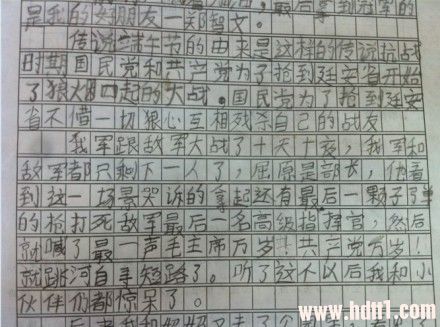 是我的好朋友一郑智文。
传说端午节的由来是这样的传说抗战
时期国民党和共产党为了抢到延安省开始
了狼烟四起的大战。国民党为了抢到延安
省不惜一切狠心互相残杀自己的战友
我军跟敌军大战了十天十夜，我军和
敌军都只剩下一人了，屈原是部长，他看
到这一场景哭诉的拿起还有最后一颗子弹
的枪打死敌军最后一名高级指挥官，然后
就喊了最一声毛主席万岁！共产党万岁！
就跳河自手短路了。听了这不以后我和小
伙伴们都惊呆了。
www.hdtt1.com